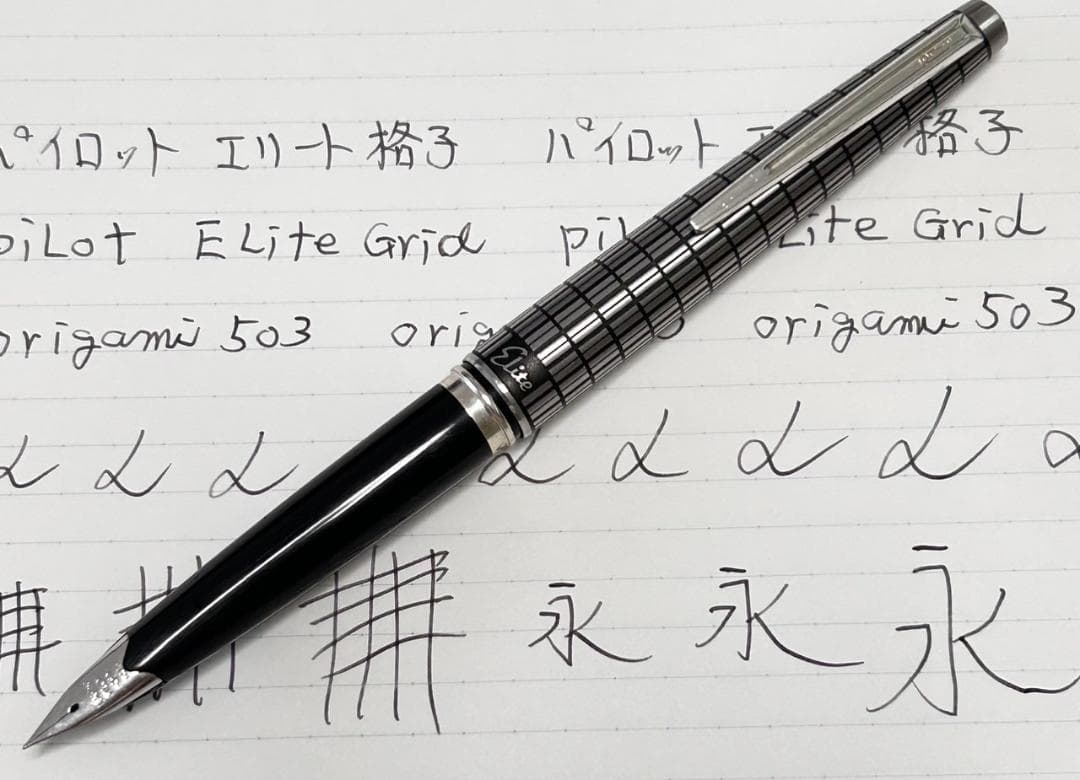 パイロット エリート格子 パイロット 格子
piLot ELite Grid pil Lite Grid
origami 503 orig origami 503
Elite
永 永 永